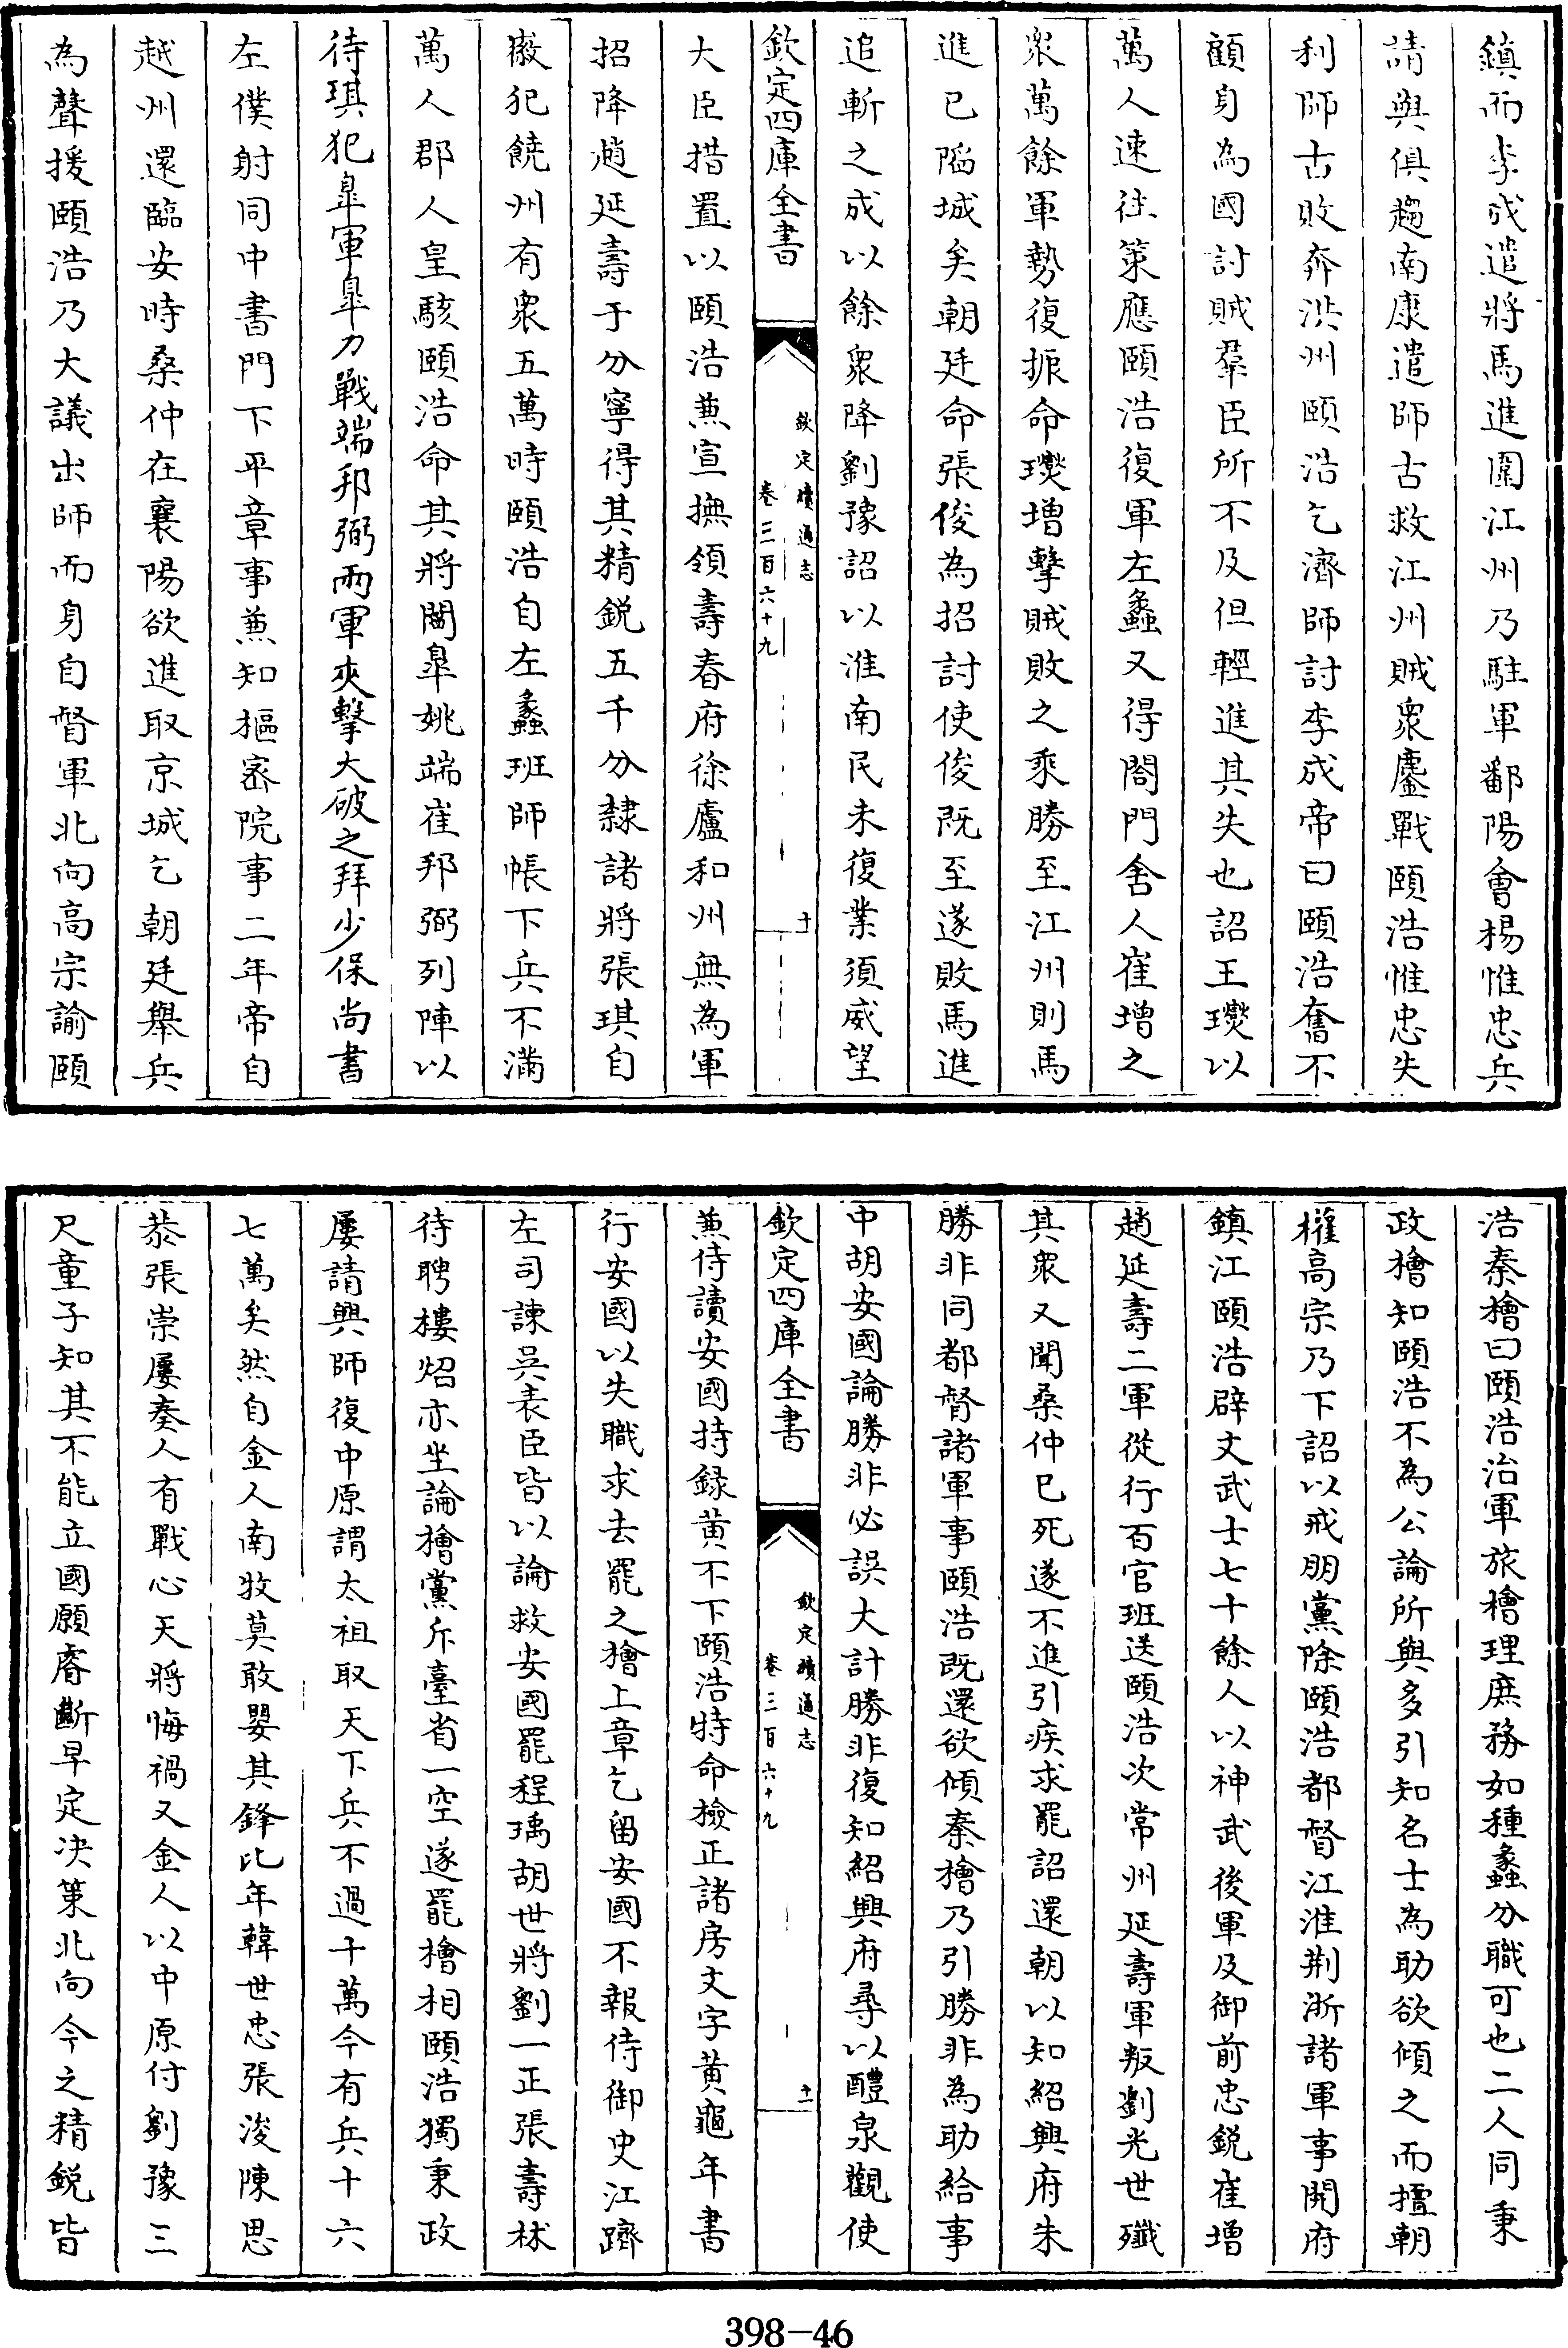 鎮而李成遣將馬進圍江州乃駐軍鄱陽會楊惟忠兵
請與俱趨南康遣師古救江州賊衆鏖戰頤浩惟忠失
利師古敗奔洪州頤浩乞濟師討李成帝曰頤浩奮不
顧身為國討賊羣臣所不及但輕進其失也詔王𤫉以
萬人速往策應頤浩復軍左蠡又得閤門舍人崔增之
衆萬餘軍勢復振命𤫉增擊賊敗之乘勝至江州則馬
進已陷城矣朝廷命張俊為招討使俊既至遂敗馬進
追斬之成以餘衆降劉豫詔以淮南民未復業須威望
欽定四庫全書
欽定續通志
卷三百六十九
十
大臣措置以頤浩兼宣撫領壽春府徐廬和州無為軍
招降趙延壽于分寧得其精鋭五千分隸諸將張琪自
徽犯饒州有衆五萬時頤浩自左蠡班師帳下兵不滿
萬人郡人皇駭頤浩命其將閻臯姚端崔邦弼列陣以
待琪犯臯軍臯力戰端邦弼兩軍夾擊大破之拜少保尚書
左僕射同中書門下平章事兼知樞密院事二年帝自
越州還臨安時桑仲在襄陽欲進取京城乞朝廷舉兵
為聲援頤浩乃大議出師而身自督軍北向高宗諭頤
浩秦檜曰頤浩治軍旅檜理庶務如種蠡分職可也二人同秉
政檜知頤浩不為公論所與多引知名士為助欲傾之而擅朝
權高宗乃下詔以戒朋黨除頤浩都督江淮荆浙諸軍事開府
鎮江頤浩辟文武士七十餘人以神武後軍及御前忠鋭崔增
趙延壽二軍從行百官班送頤浩次常州延壽軍叛劉光世殲
其衆又聞桑仲已死遂不進引疾求罷詔還朝以知紹興府朱
勝非同都督諸軍事頤浩既還欲傾秦檜乃引勝非為助給事
中胡安國論勝非必誤大計勝非復知紹興府尋以醴泉觀使
欽定四庫全書
欽定續通志
卷三百六十九
十一
兼侍讀安國持録黄不下頤浩特命檢正諸房文字黄龜年書
行安國以失職求去罷之檜上章乞留安國不報侍御史江躋
左司諫吳表臣皆以論救安國罷程瑀胡世將劉一正張壽林
待聘樓炤亦坐論檜黨斥臺省一空遂罷檜相頤浩獨秉政
屢請興師復中原謂太祖取天下兵不過十萬今有兵十六
七萬矣然自金人南牧莫敢嬰其鋒比年韓世忠張浚陳思
恭張崇屢奏人有戰心天將悔禍又金人以中原付劉豫三
尺童子知其不能立國願睿斷早定决策北向今之精鋭皆
398-46